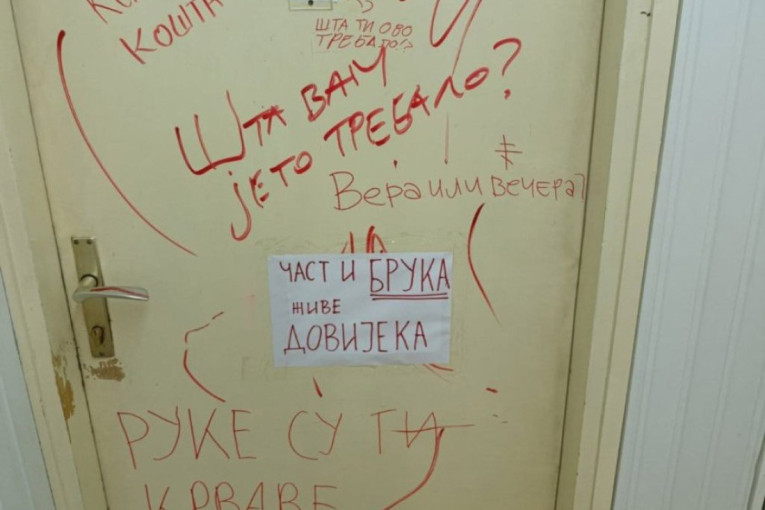 КОШТА
ШТА ТИ ОВО
ТРЕБАЛО!?
ШТА ВАМ
ЈЕ ТО ТРЕБАЛО?
Вера или вечера?
ЧАСТ И БРУКА
ЖИВЕ
ДОВИЈЕКА
РУКЕ СУ ТИ
КРВАВЕ